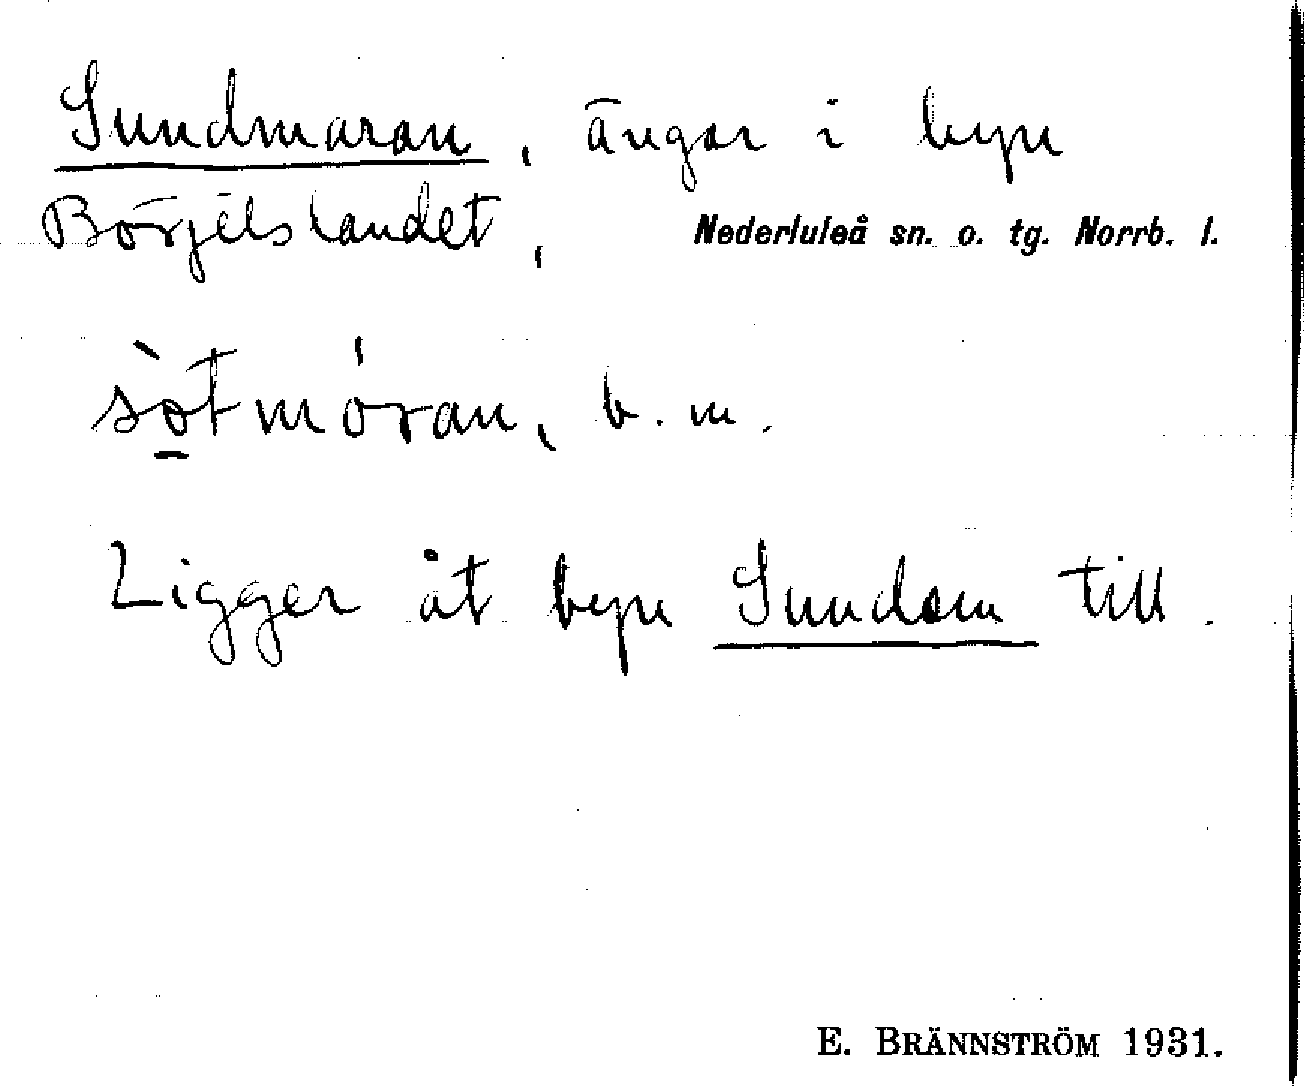 Sundmaran, ängar i byn
Börjelslandet, Nederluleå sn. o. tg. Norrb. l.
sò̱tmóran, b. m.
Ligger åt byn Sundom till.
E. BRÄNNSTRÖM 1931.